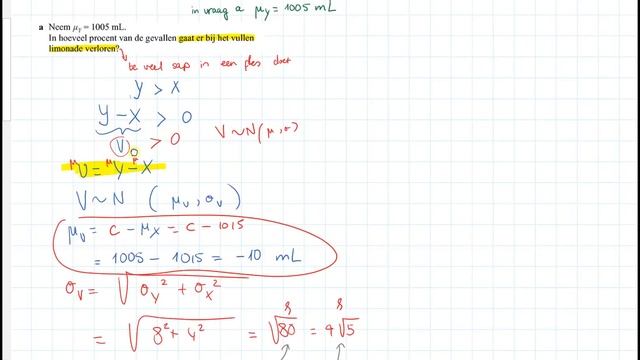 in vraag a μy = 1005 mL
a Neem μY = 1005 mL.
In hoeveel procent van de gevallen gaat er bij het vullen
limonade verloren?
te veel sap in een fles doet
y > x
y - x > 0
V > 0 V ~ N(μ, σ)
μV = μY - X
V ~ N (μv, σv)
μv = C - μx = C - 1015
= 1005 - 1015 = -10 mL
σv = √σy² + σx²
= √8² + 4² = √80 = 4√5